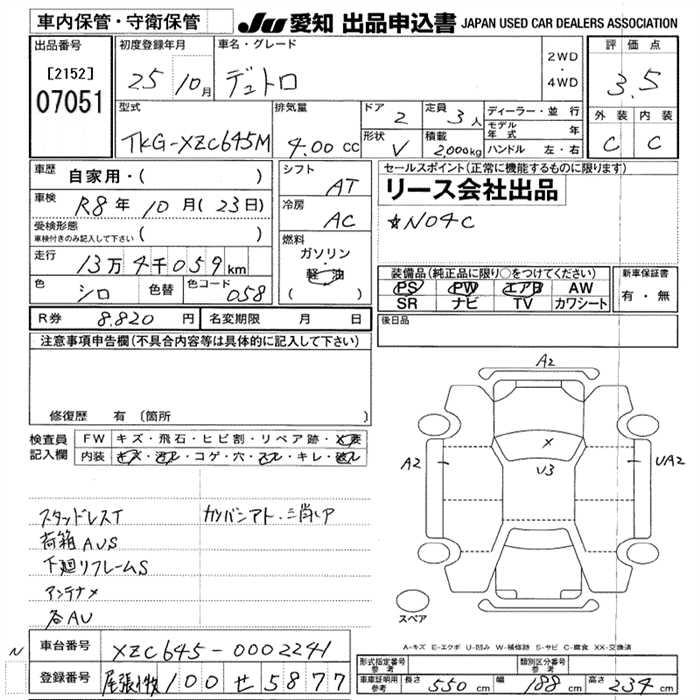 車内保管・守衛保管
JU 愛知 出品申込書 JAPAN USED CAR DEALERS ASSOCIATION
出品番号
[2152]
07051
初度登録年月
25 10月
車名・グレード
デュトロ
2WD
・
4WD
評価点
3.5
外装 内装
C C
型式
TKG-XZC645M
排気量
4.00 cc
ドア 2
定員 3人
形状 V
積載 2,000kg
ディーラー・並行
モデル年式 年
ハンドル 左・右
車歴 自家用・( )
車検 R8年 10月(23日)
受検形態
車検付きのみ記入して下さい ( )
走行 13万4千059km
色 シロ 色替 色コード 058
シフト AT
冷房 AC
燃料
ガソリン
・
軽油
( )
セールスポイント(正常に機能するものに限ります)
リース会社出品
☆N04C
装備品(純正品に限り○をつけてください)
PS PW エアB AW
SR ナビ TV カワシート
新車保証書
有・無
R券 8,820円 名変期限 月 日
後日品
注意事項申告欄(不具合内容等は具体的に記入して下さい)
修復歴 有 (箇所 )
検査員記入欄
FW キズ・飛石・ヒビ割・リペア跡・X要
内装 キズ・汚レ・コゲ・穴・スレ・キレ・破レ
スタッドレスT カンバンアト・ニ肖レア
荷箱AUS
下廻リフレームS
アンテナメ
各AU
A2
A2
X
U3
UA2
スペア
A-キズ E-エクボ U-凹み W-補修跡 S-サビ C-腐食 XX-交換済
N
車台番号 XZC645-0002241
登録番号 尾張小牧 100 せ 5877
形式指定番号 参考
類別区分番号 参考
車庫証明用 参考 長さ 550cm 幅 188cm 高さ 234cm